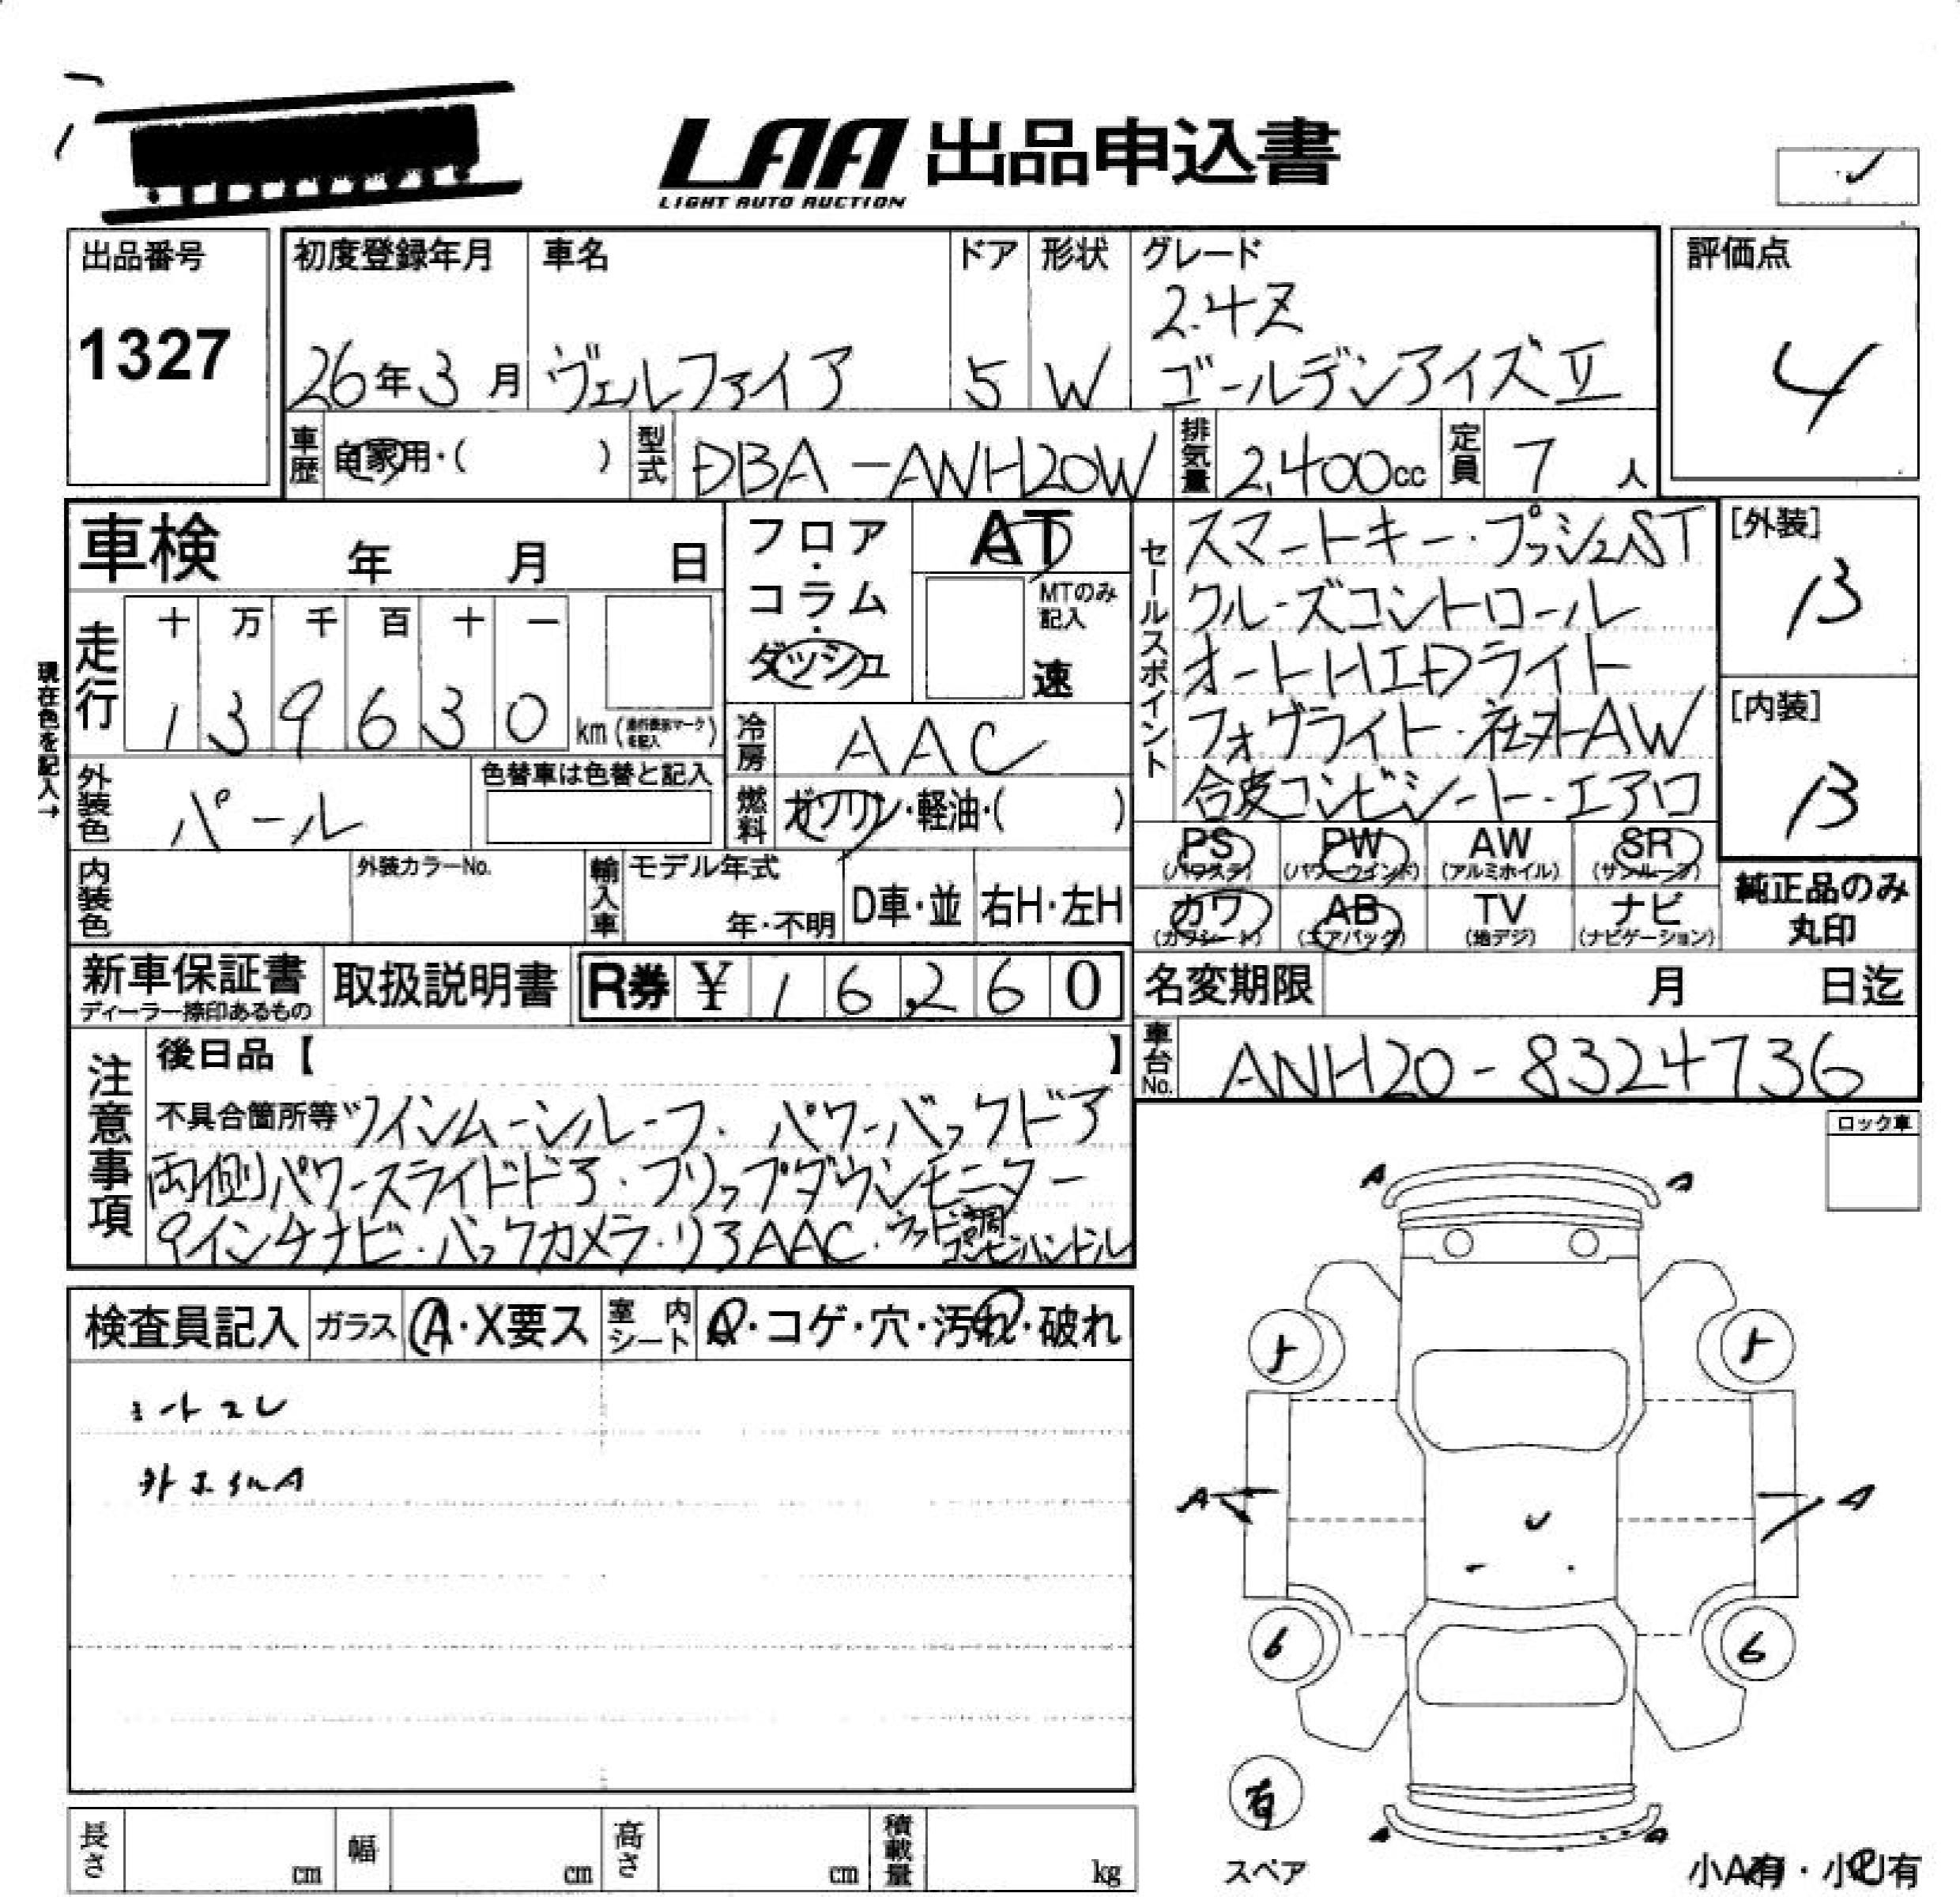 LAA 出品申込書
LIGHT AUTO AUCTION
出品番号
1327
初度登録年月
26年3月
車名
ヴェルファイア
ドア
5
形状
W
グレード
2.4Z
ゴールデンアイズⅡ
評価点
4
車歴 自家用・( )
型式 DBA-ANH20W
排気量 2,400cc
定員 7人
車検 年 月 日
フロア・コラム・ダッシュ
AT
MTのみ記入
速
走行
十 万 千 百 十 一
1 3 9 6 3 0 km (走行表示マークを記入)
現在色を記入→
外装色 パール
色替車は色替と記入
冷房 AAC
燃料 ガソリン・軽油・( )
内装色
外装カラーNo.
輸入車
モデル年式
年・不明
D車・並
右H・左H
セールスポイント
スマートキー・プッシュST
クルーズコントロール
オートHIDライト
フォグライト・社外AW
合皮コンビシート・エアロ
[外装]
B
[内装]
B
PS (パワステ)
PW (パワーウインド)
AW (アルミホイル)
SR (サンルーフ)
カワ (カワシート)
AB (エアバッグ)
TV (地デジ)
ナビ (ナビゲーション)
純正品のみ丸印
新車保証書
ディーラー捺印あるもの
取扱説明書
R券 ¥ 16,260
名変期限 月 日迄
車台No. ANH20-8324736
注意事項
後日品【 】
不具合箇所等 ツインムーンルーフ・パワーバックドア
両側パワースライドドア・フリップダウンモニター
9インチナビ・バックカメラ・リアAAC・ウッド調コンビハンドル
検査員記入
ガラス A・X要ス
室内シート A・コゲ・穴・汚れ・破れ
ロック車
A A
5 5
A A
6 6
有
スペア
A A
小A有・小U有
長さ cm
幅 cm
高さ cm
積載量 kg